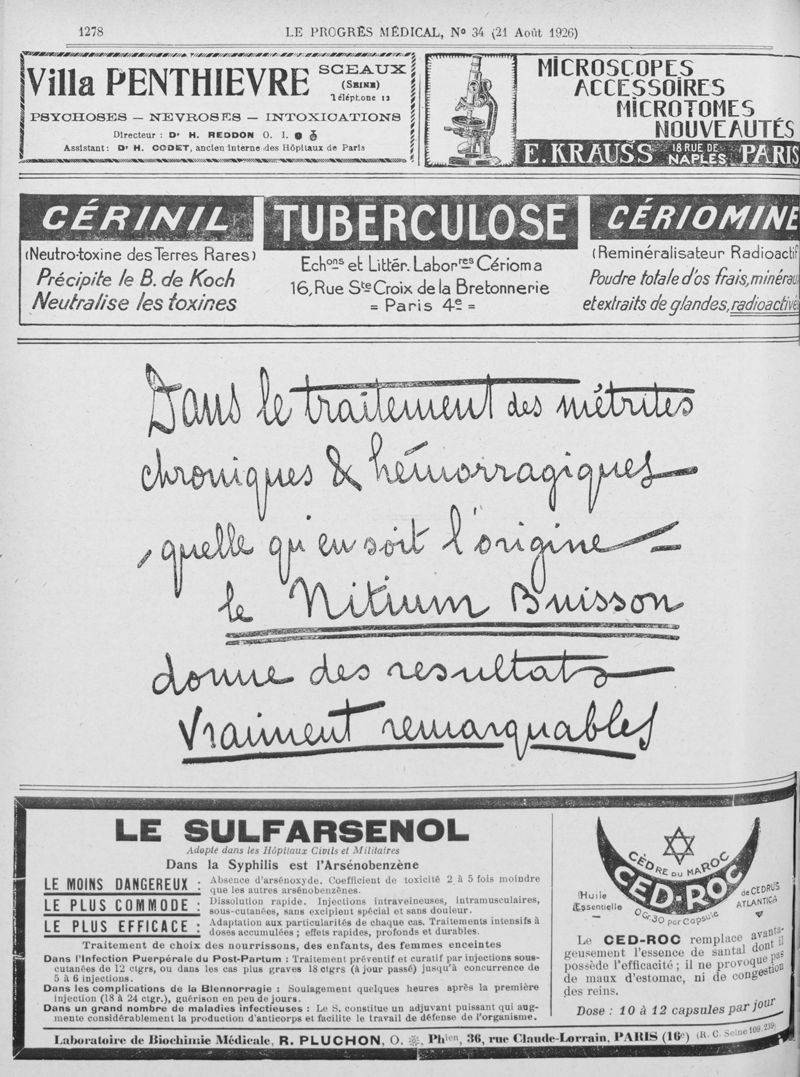 1278
LE PROGRÈS MÉDICAL, No 34 (21 Août 1926)
Villa PENTHIEVRE
SCEAUX
(SEINE)
Téléphone 12
PSYCHOSES — NEVROSES — INTOXICATIONS
Directeur : Dr H. REDDON O. I.
Assistant : Dr H. CODET, ancien interne des Hôpitaux de Paris
MICROSCOPES
ACCESSOIRES
MICROTOMES
NOUVEAUTÉS
E. KRAUSS 18 RUE DE NAPLES PARIS
CÉRINIL
(Neutro-toxine des Terres Rares)
Précipite le B. de Koch
Neutralise les toxines
TUBERCULOSE
Echons et Littér. Laborres Cérioma
16, Rue Ste Croix de la Bretonnerie
= Paris 4e =
CÉRIOMINE
(Reminéralisateur Radioactif
Poudre totale d'os frais, minérau
et extraits de glandes, radioactivé
Dans le traitement des métrites
chroniques & hémorragiques
, quelle qu'en soit l'origine
le Nitium Buisson
donne des resultats
vraiment remarquables
LE SULFARSENOL
Adopté dans les Hôpitaux Civils et Militaires
Dans la Syphilis est l'Arsénobenzène
LE MOINS DANGEREUX : Absence d'arsénoxyde. Coefficient de toxicité 2 à 5 fois moindre
que les autres arsénobenzènes.
LE PLUS COMMODE : Dissolution rapide. Injections intraveineuses, intramusculaires,
sous-cutanées, sans excipient spécial et sans douleur.
LE PLUS EFFICACE : Adaptation aux particularités de chaque cas. Traitements intensifs à
doses accumulées ; effets rapides, profonds et durables.
Traitement de choix des nourrissons, des enfants, des femmes enceintes
Dans l'Infection Puerpérale du Post-Partum : Traitement préventif et curatif par injections sous-
cutanées de 12 ctgrs, ou dans les cas plus graves 18 ctgrs (à jour passé) jusqu'à concurrence de
5 à 6 injections.
Dans les complications de la Blennorragie : Soulagement quelques heures après la première
injection (18 à 24 ctgr.), guérison en peu de jours.
Dans un grand nombre de maladies infectieuses : Le S. constitue un adjuvant puissant qui aug-
mente considérablement la production d'anticorps et facilite le travail de défense de l'organisme.
CÈDRE DU MAROC
CED-ROC
Huile
Essentielle
de CEDRUS
ATLANTICA
0 Gr. 30 par Capsule
Le CED-ROC remplace avanta-
geusement l'essence de santal dont il
possède l'efficacité ; il ne provoque pas
de maux d'estomac, ni de congestion
des reins.
Dose : 10 à 12 capsules par jour
Laboratoire de Biochimie Médicale, R. PLUCHON, O. Phien, 36, rue Claude-Lorrain, PARIS (16e) (R. C. Seine 109.239)